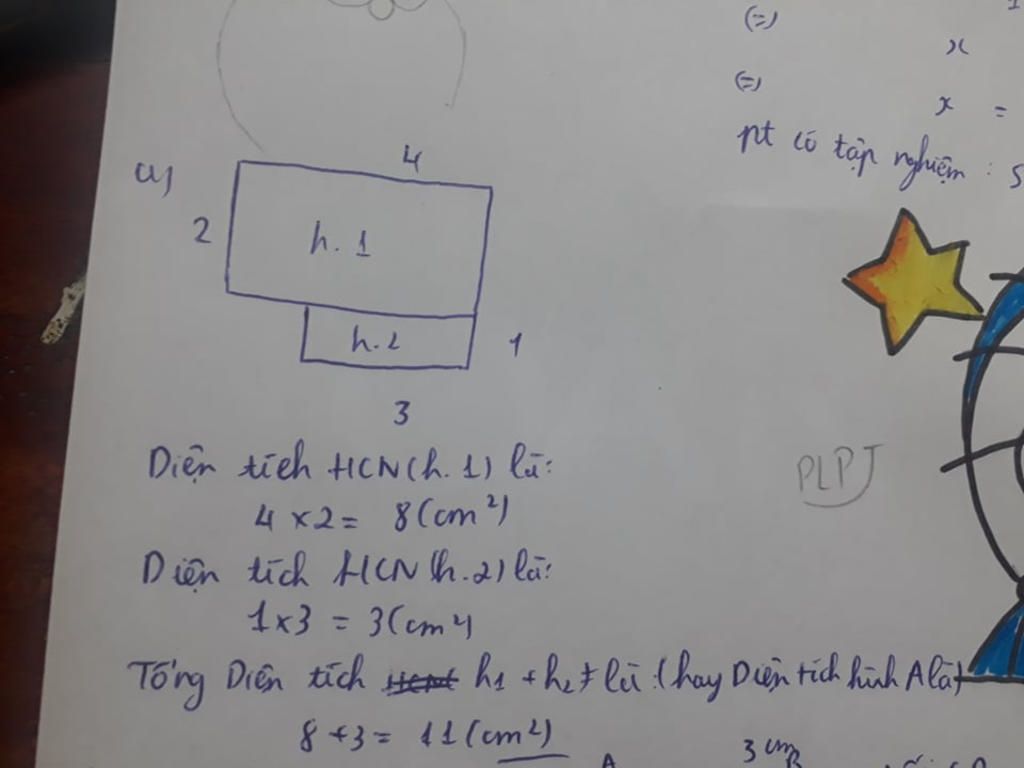 (=)
x
(=)
x =
pt có tập nghiệm : S
a)
4
2
h. 1
h. 2
1
3
PLPT
Diện tích HCN (h. 1) là:
4 x 2 = 8 (cm²)
Diện tích HCN (h. 2) là:
1 x 3 = 3 (cm²)
Tổng Diện tích h1 + h2 là : (hay Diện tích hình A là)
8 + 3 = 11 (cm²)
A
3 cm
B